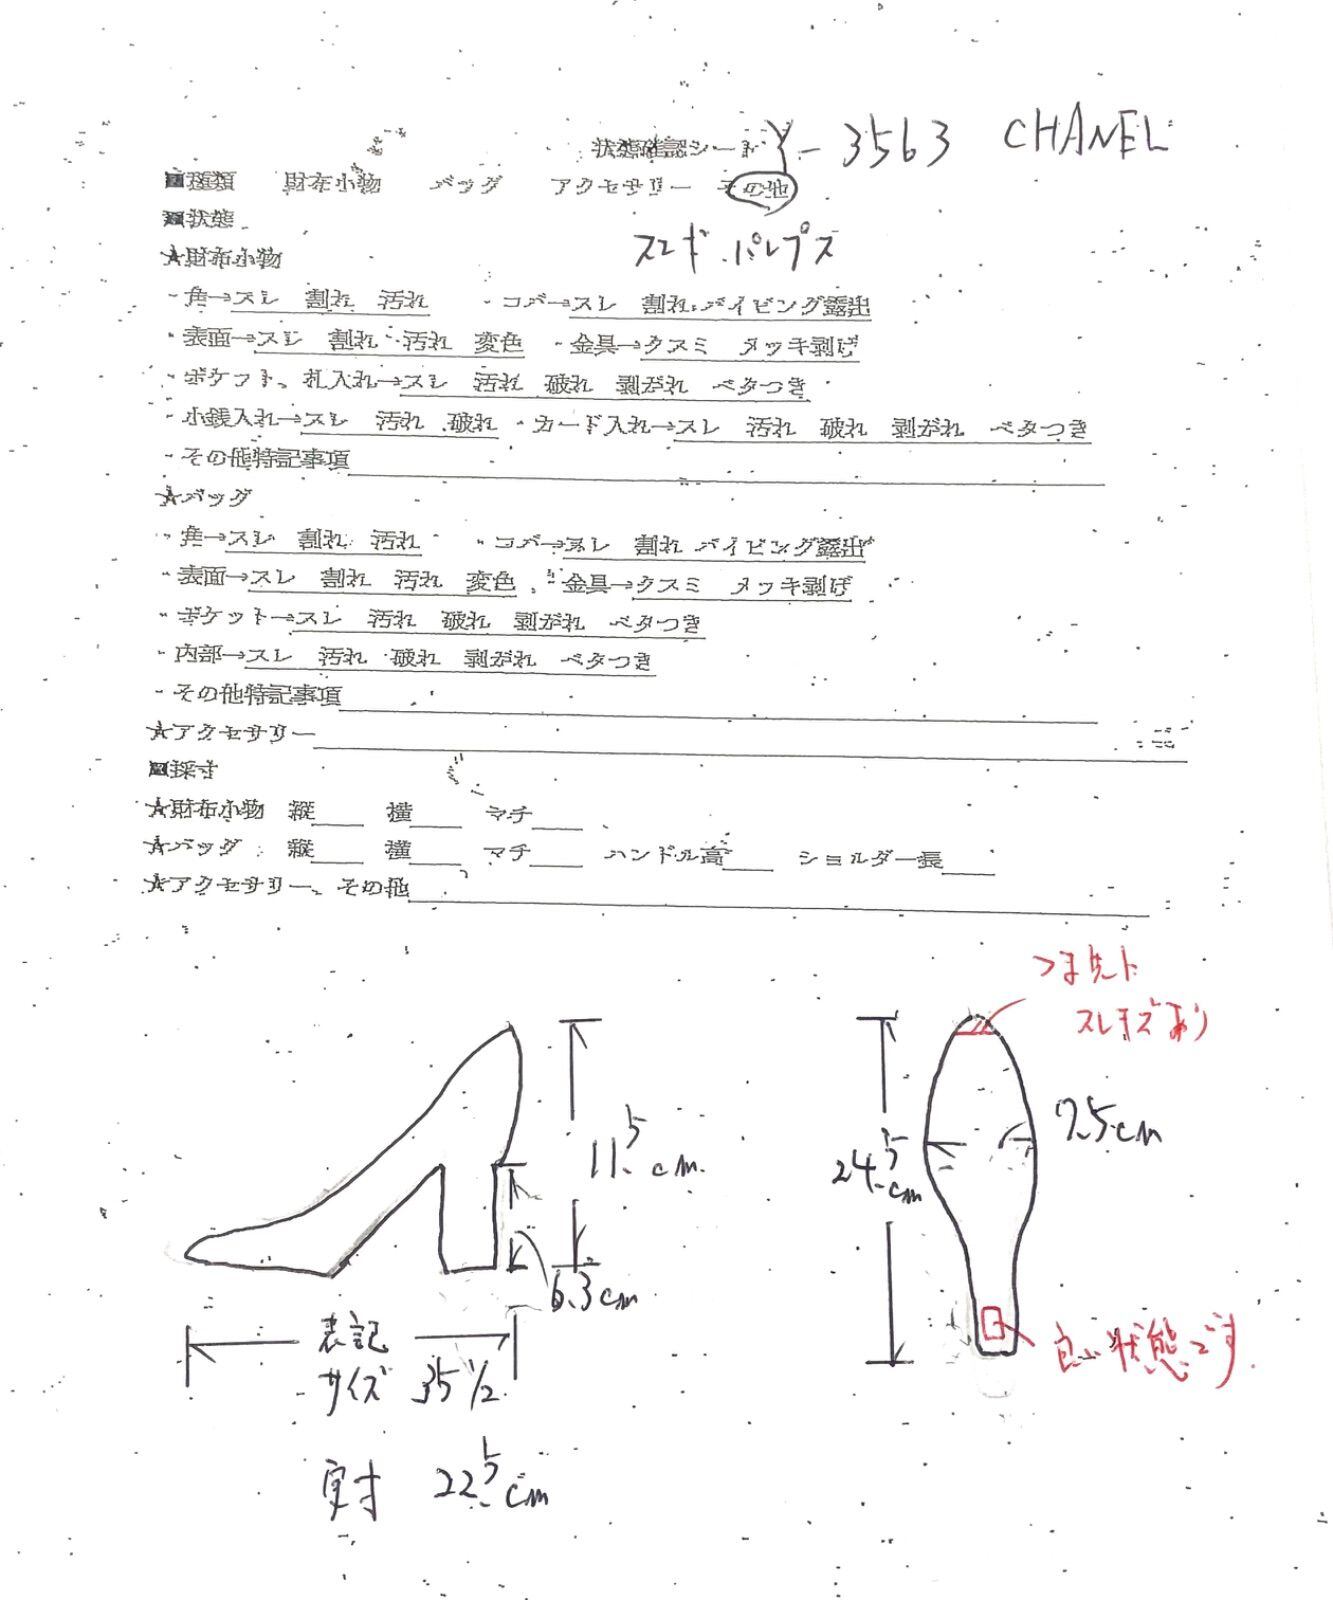 状態確認シート Y-3563 CHANEL
■種類 財布小物 バッグ アクセサリー その他
■状態
スエード パンプス
★財布小物
・角→スレ 割れ 汚れ ・コバ→スレ 割れ パイピング露出
・表面→スレ 割れ 汚れ 変色 ・金具→クスミ メッキ剥げ
・ポケット、札入れ→スレ 汚れ 破れ 剥がれ ベタつき
・小銭入れ→スレ 汚れ 破れ ・カード入れ→スレ 汚れ 破れ 剥がれ ベタつき
・その他特記事項
★バッグ
・角→スレ 割れ 汚れ ・コバ→スレ 割れ パイピング露出
・表面→スレ 割れ 汚れ 変色 ・金具→クスミ メッキ剥げ
・ポケット→スレ 汚れ 破れ 剥がれ ベタつき
・内部→スレ 汚れ 破れ 剥がれ ベタつき
・その他特記事項
★アクセサリー
■採寸
★財布小物 縦 横 マチ
★バッグ 縦 横 マチ ハンドル高 ショルダー長
★アクセサリー、その他
つま先に
スレキズあり
11.5cm
6.3cm
24.5cm
7.5cm
良い状態です
表記
サイズ 35 1/2
実寸 22.5cm